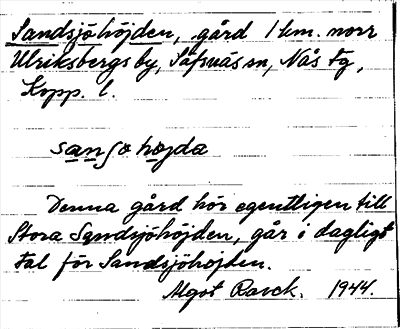 Sandsjöhöjden, gård 1 km. norr
Ulriksbergs by, Säfsnäs sn, Nås fg,
Kopp. l.
sansjöhöjda
Denna gård hör egentligen till
Stora Sandsjöhöjden, går i dagligt
tal för Sandsjöhöjden.
Algot 1944.